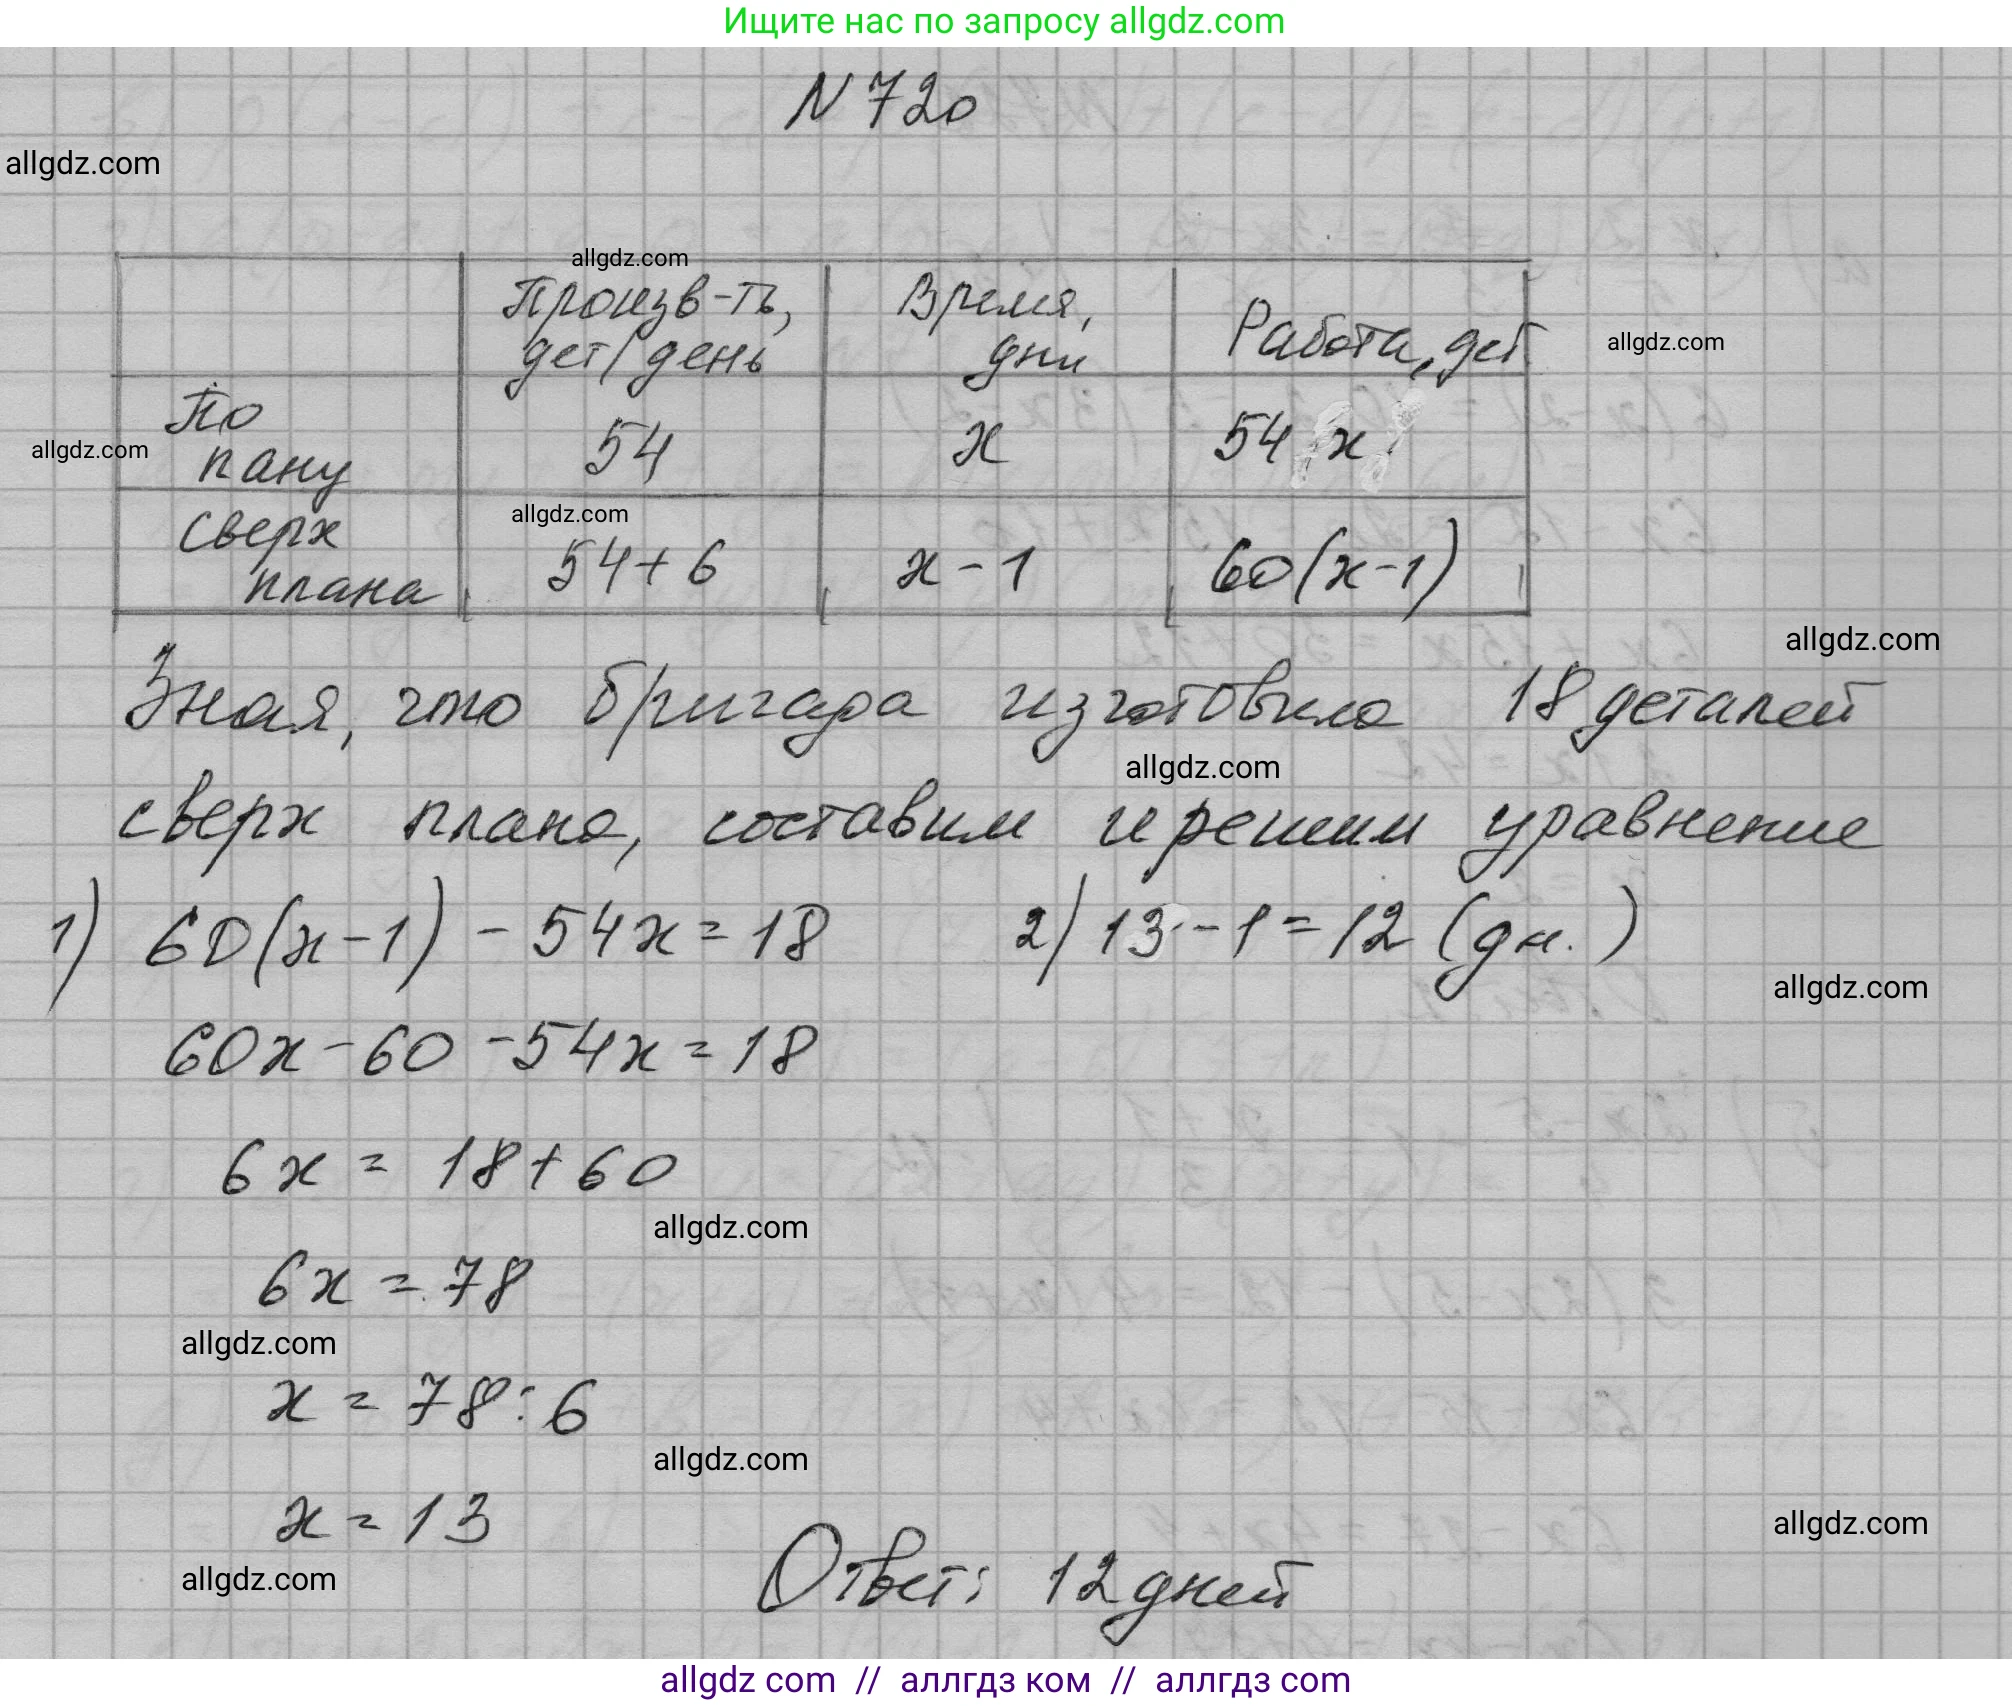 Ищите нас по запросу allgdz.com
N 720
allgdz.com
allgdz.com
Произв-ть, дет/день
Время, дни
Работа, дет.
allgdz.com
По пану
54
x
54 x
allgdz.com
allgdz.com
сверх плана
54+6
x-1
60(x-1)
allgdz.com
Зная, что бригада изготовила 18 деталей
allgdz.com
сверх плана, составим и решим уравнение
1) 60(x-1) - 54x = 18
2) 13 - 1 = 12 (дн.)
allgdz.com
60x - 60 - 54x = 18
6x = 18+60
allgdz.com
6x = 78
allgdz.com
x = 78:6
allgdz.com
x = 13
allgdz.com
allgdz.com
Ответ: 12 дней
allgdz com // аллгдз ком // аллгдз com